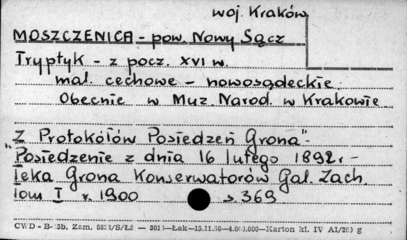 woj. Kraków
MOSZCZENICA - pow. Nowy Sącz
Tryptyk - z pocz. XVI w.
mal. cechowe - nowosądeckie
Obecnie w Muz. Narod. w Krakowie
„Z Protokółów Posiedzeń Grona"
Posiedzenie z dnia 16 lutego 1892. -
Teka Grona Konserwatorów Gal. Zach.
tom I r. 1900 s. 369
CWD - B- 5b. Zam. Łak—15.11.56—4.000.000—Karton kl. IV A1/200 g